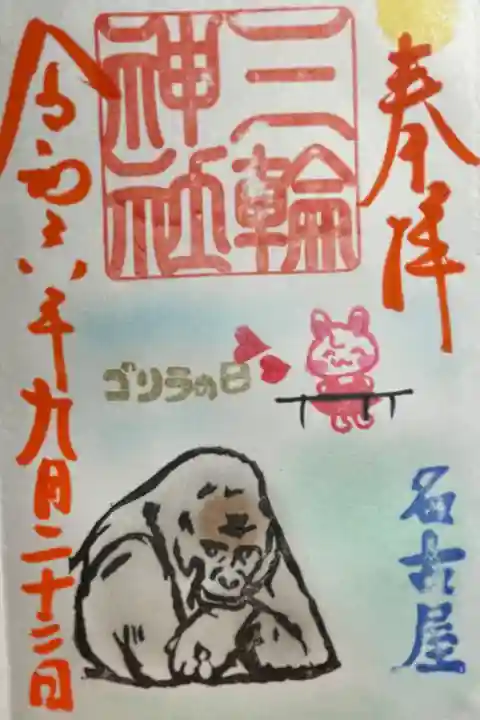 奉拝
三輪
神社
ゴリラの日
名古屋
令和六年九月二十三日